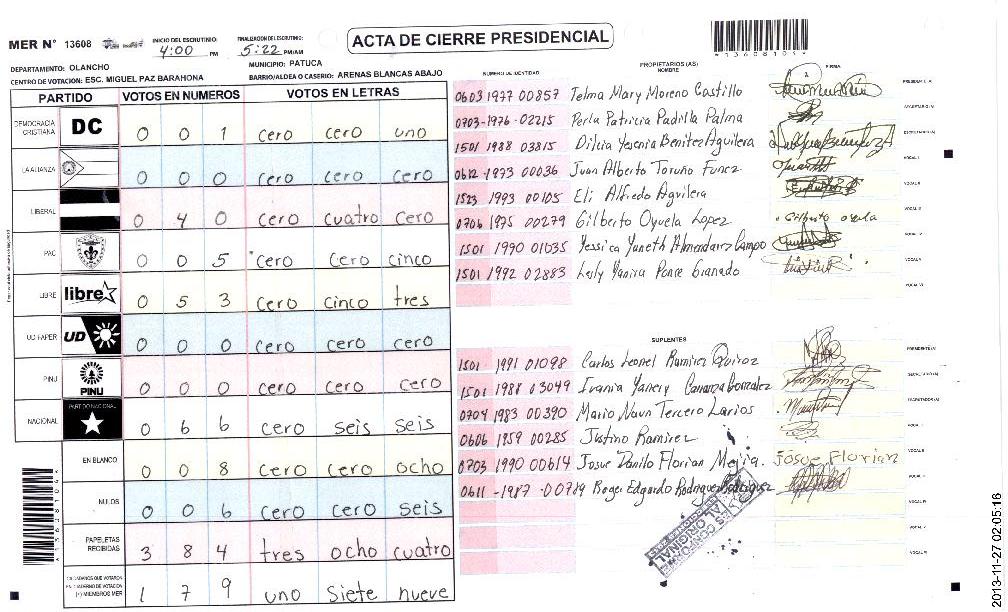 MER N° 13608
INICIO DEL ESCRUTINIO: 4:00 PM
FINALIZACION DEL ESCRUTINIO: 5:22 PM/AM
ACTA DE CIERRE PRESIDENCIAL
*13608104*
DEPARTAMENTO: OLANCHO
MUNICIPIO: PATUCA
CENTRO DE VOTACION: ESC. MIGUEL PAZ BARAHONA
BARRIO/ALDEA O CASERIO: ARENAS BLANCAS ABAJO
PARTIDO VOTOS EN NUMEROS VOTOS EN LETRAS
DEMOCRACIA CRISTIANA DC 0 0 1 cero cero uno
LA ALIANZA 0 0 0 cero cero cero
LIBERAL 0 4 0 cero cuatro cero
PAC 0 0 5 cero cero cinco
LIBRE libre 0 5 3 cero cinco tres
UD FAPER UD 0 0 0 cero cero cero
PINU PINU 0 0 0 cero cero cero
NACIONAL PARTIDO NACIONAL 0 6 6 cero seis seis
EN BLANCO 0 0 8 cero cero ocho
NULOS 0 0 6 cero cero seis
PAPELETAS RECIBIDAS 3 8 4 tres ocho cuatro
CIUDADANOS QUE VOTARON EN CUADERNO DE VOTACION (+) MIEMBROS MER 1 7 9 uno siete nueve
NUMERO DE IDENTIDAD PROPIETARIOS (AS) NOMBRE FIRMA
0603 1977 00857 Telma Mary Moreno Castillo PRESIDENTE (A)
0703-1976-02215 Perla Patricia Padilla Palma SECRETARIO (A)
1501 1988 03815 Dilcia Yesenia Benitez Aguilera ESCRUTADOR(A)
0612-1973 00036 Juan Alberto Toruño Funez VOCAL I
1523 1993 00105 Eli Alfredo Aguilera VOCAL II
0706 1975 00279 Gilberto Oyuela Lopez Gilberto oyela VOCAL III
1501 1990 01035 Yessica Yaneth Almendarez Campo VOCAL IV
1501 1992 02883 Lesly Yanira Ponce Granado VOCAL V
VOCAL VI
SUPLENTES
1501 1991 01098 Carlos Leonel Ramirez Quiroz PRESIDENTE(A)
1501 1988 03049 Irania Yanery Carranza Gonzalez SECRETARIO(A)
0704 1983 00390 Mario Naun Tercero Larios ESCRUTADOR(A)
0606 1959 00285 Justino Ramirez VOCAL I
0703 1990 00614 Josue Danilo Florian Mejia. Josue Florian VOCAL II
0611-1987-00789 Roger Edgardo Rodriguez Rodriguez VOCAL III
ORIGINAL
2013-11-27 02:05:16